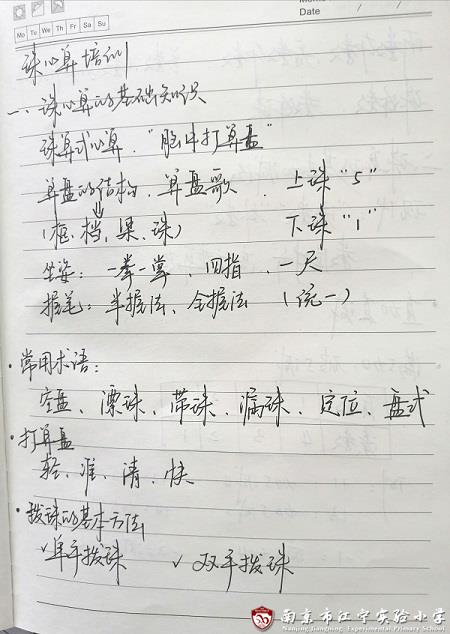 Date / /
Mo Tu We Th Fr Sa Su
珠心算培训
一、珠心算的基础知识
珠算式心算."脑中打算盘"
算盘的结构、算盘歌 上珠"5"
(框、档、梁、珠) 下珠"1"
坐姿:一拳一掌、四指、一尺
握笔:半握法、全握法 (统一)
·常用术语:
空盘、漂珠、带珠、漏珠、定位、盘式
·打算盘
轻、准、清、快
·拨珠的基本方法
✓单手拨珠 ✓双手拨珠
南京市江宁实验小学
Nanjing Jiangning Experimental Primary School